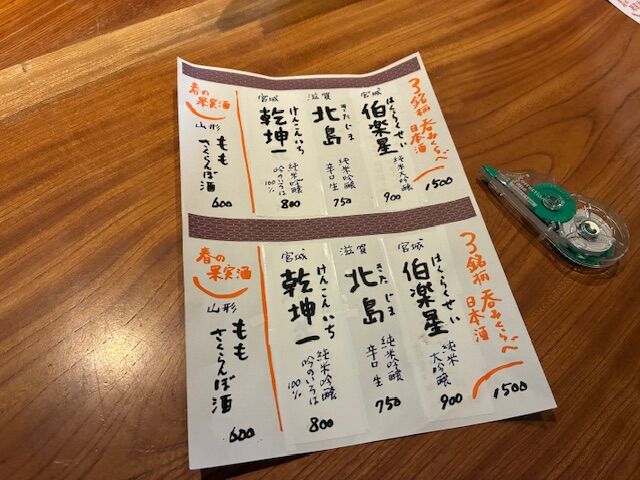 3銘柄呑みくらべ
日本酒
1500
宮城
伯楽星
はくらくせい
純米大吟醸
900
滋賀
北島
きたじま
純米吟醸
辛口生
750
宮城
乾坤一
けんこんいち
純米吟醸
吟のいろは
100%
800
春の
果実酒
山形
もも
さくらんぼ酒
600
3銘柄呑みくらべ
日本酒
1500
宮城
伯楽星
はくらくせい
純米
大吟醸
900
滋賀
北島
きたじま
純米吟醸
辛口生
750
宮城
乾坤一
けんこんいち
純米吟醸
吟のいろは
100%
800
春の
果実酒
山形
もも
さくらんぼ酒
600